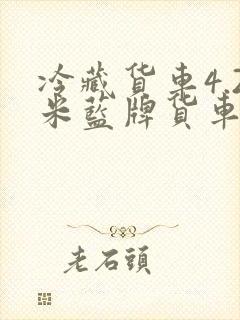 冷藏货車4.2
米藍牌貨車
老石頭